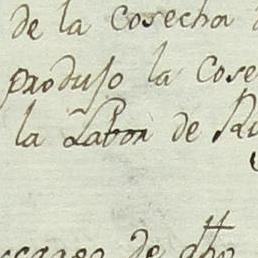 de la Cosecha
produjo la Cose
la Labor de
de dho